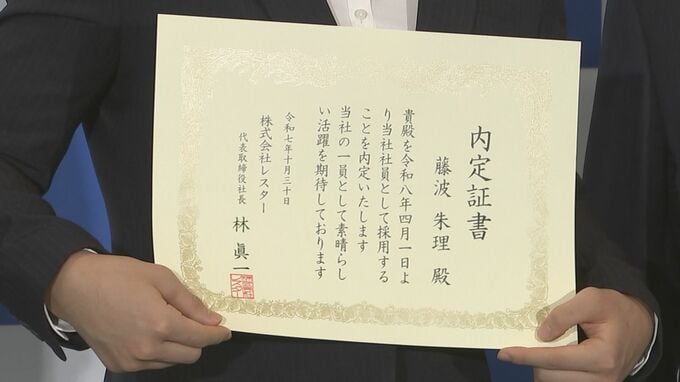 内定証書
藤波 朱理 殿
貴殿を令和八年四月一日よ
り当社社員として採用する
ことを内定いたします
当社の一員として素晴らし
い活躍を期待しております
令和七年十月三十日
株式会社レスター
代表取締役社長 林 眞一